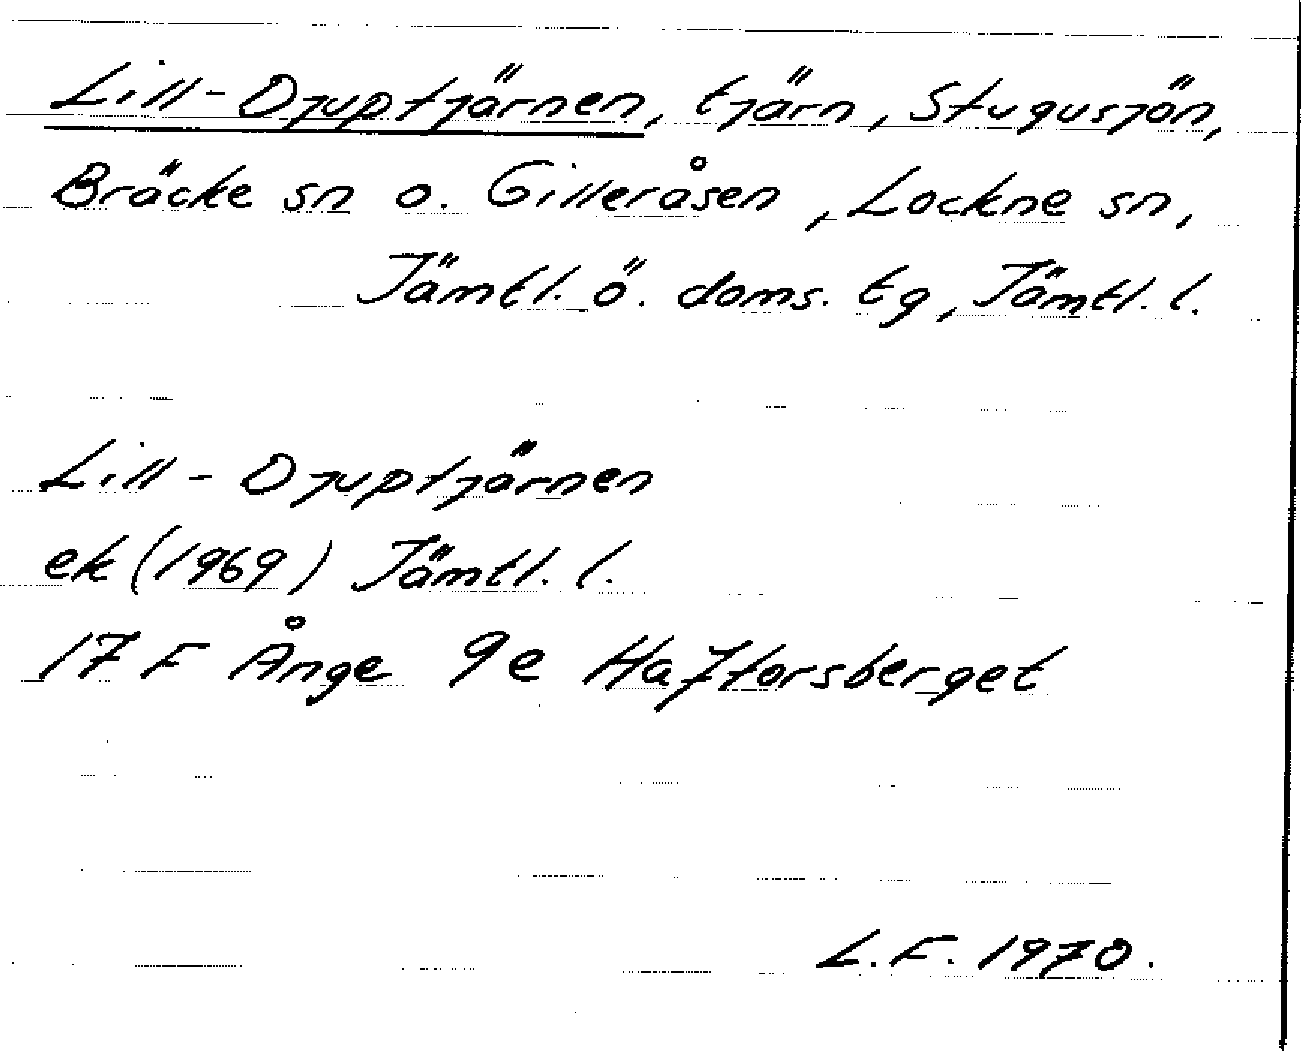 Lill-Djuptjärnen, tjärn, Stugusjön,
Bräcke sn o. Gilleråsen, Lockne sn,
Jämtl. ö. doms. tg, Jämtl. l.
Lill-Djuptjärnen
ek (1969) Jämtl. l.
17 F Ånge 9e Haftorsberget
L.F. 1970.